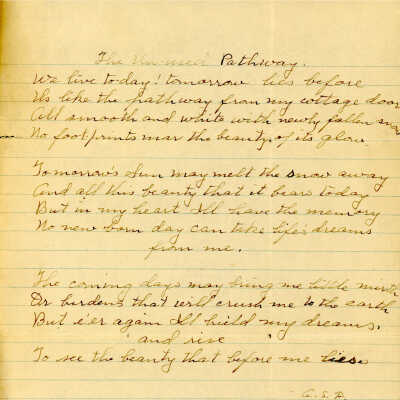 The Pathway.
We live today! tomorrow lies before
Us like the pathway from my cottage door
All smooth and white with newly fallen snow
No footprints mar the beauty of its glow.
Tomorrow's Sun may melt the snow away
And all this beauty that it bears today
But in my heart I'll have the memory
No new born day can take life's dreams
from me.
The coming days may bring me little mirth
Or burdens that will crush me to the earth
But e'er again I'll build my dreams,
and rise
To see the beauty that before me lies.